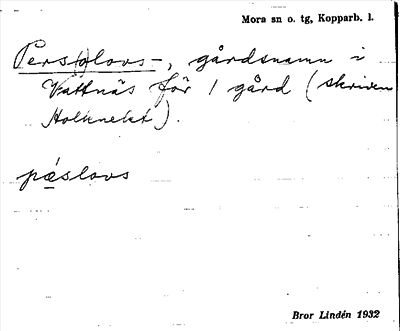 Mora sn o. tg, Kopparb. l.
Pers(o)lovs-, gårdsnamn i
Vattnäs för 1 gård (skriven
Holknekt).
pǽslovs
Bror Lindén 1932